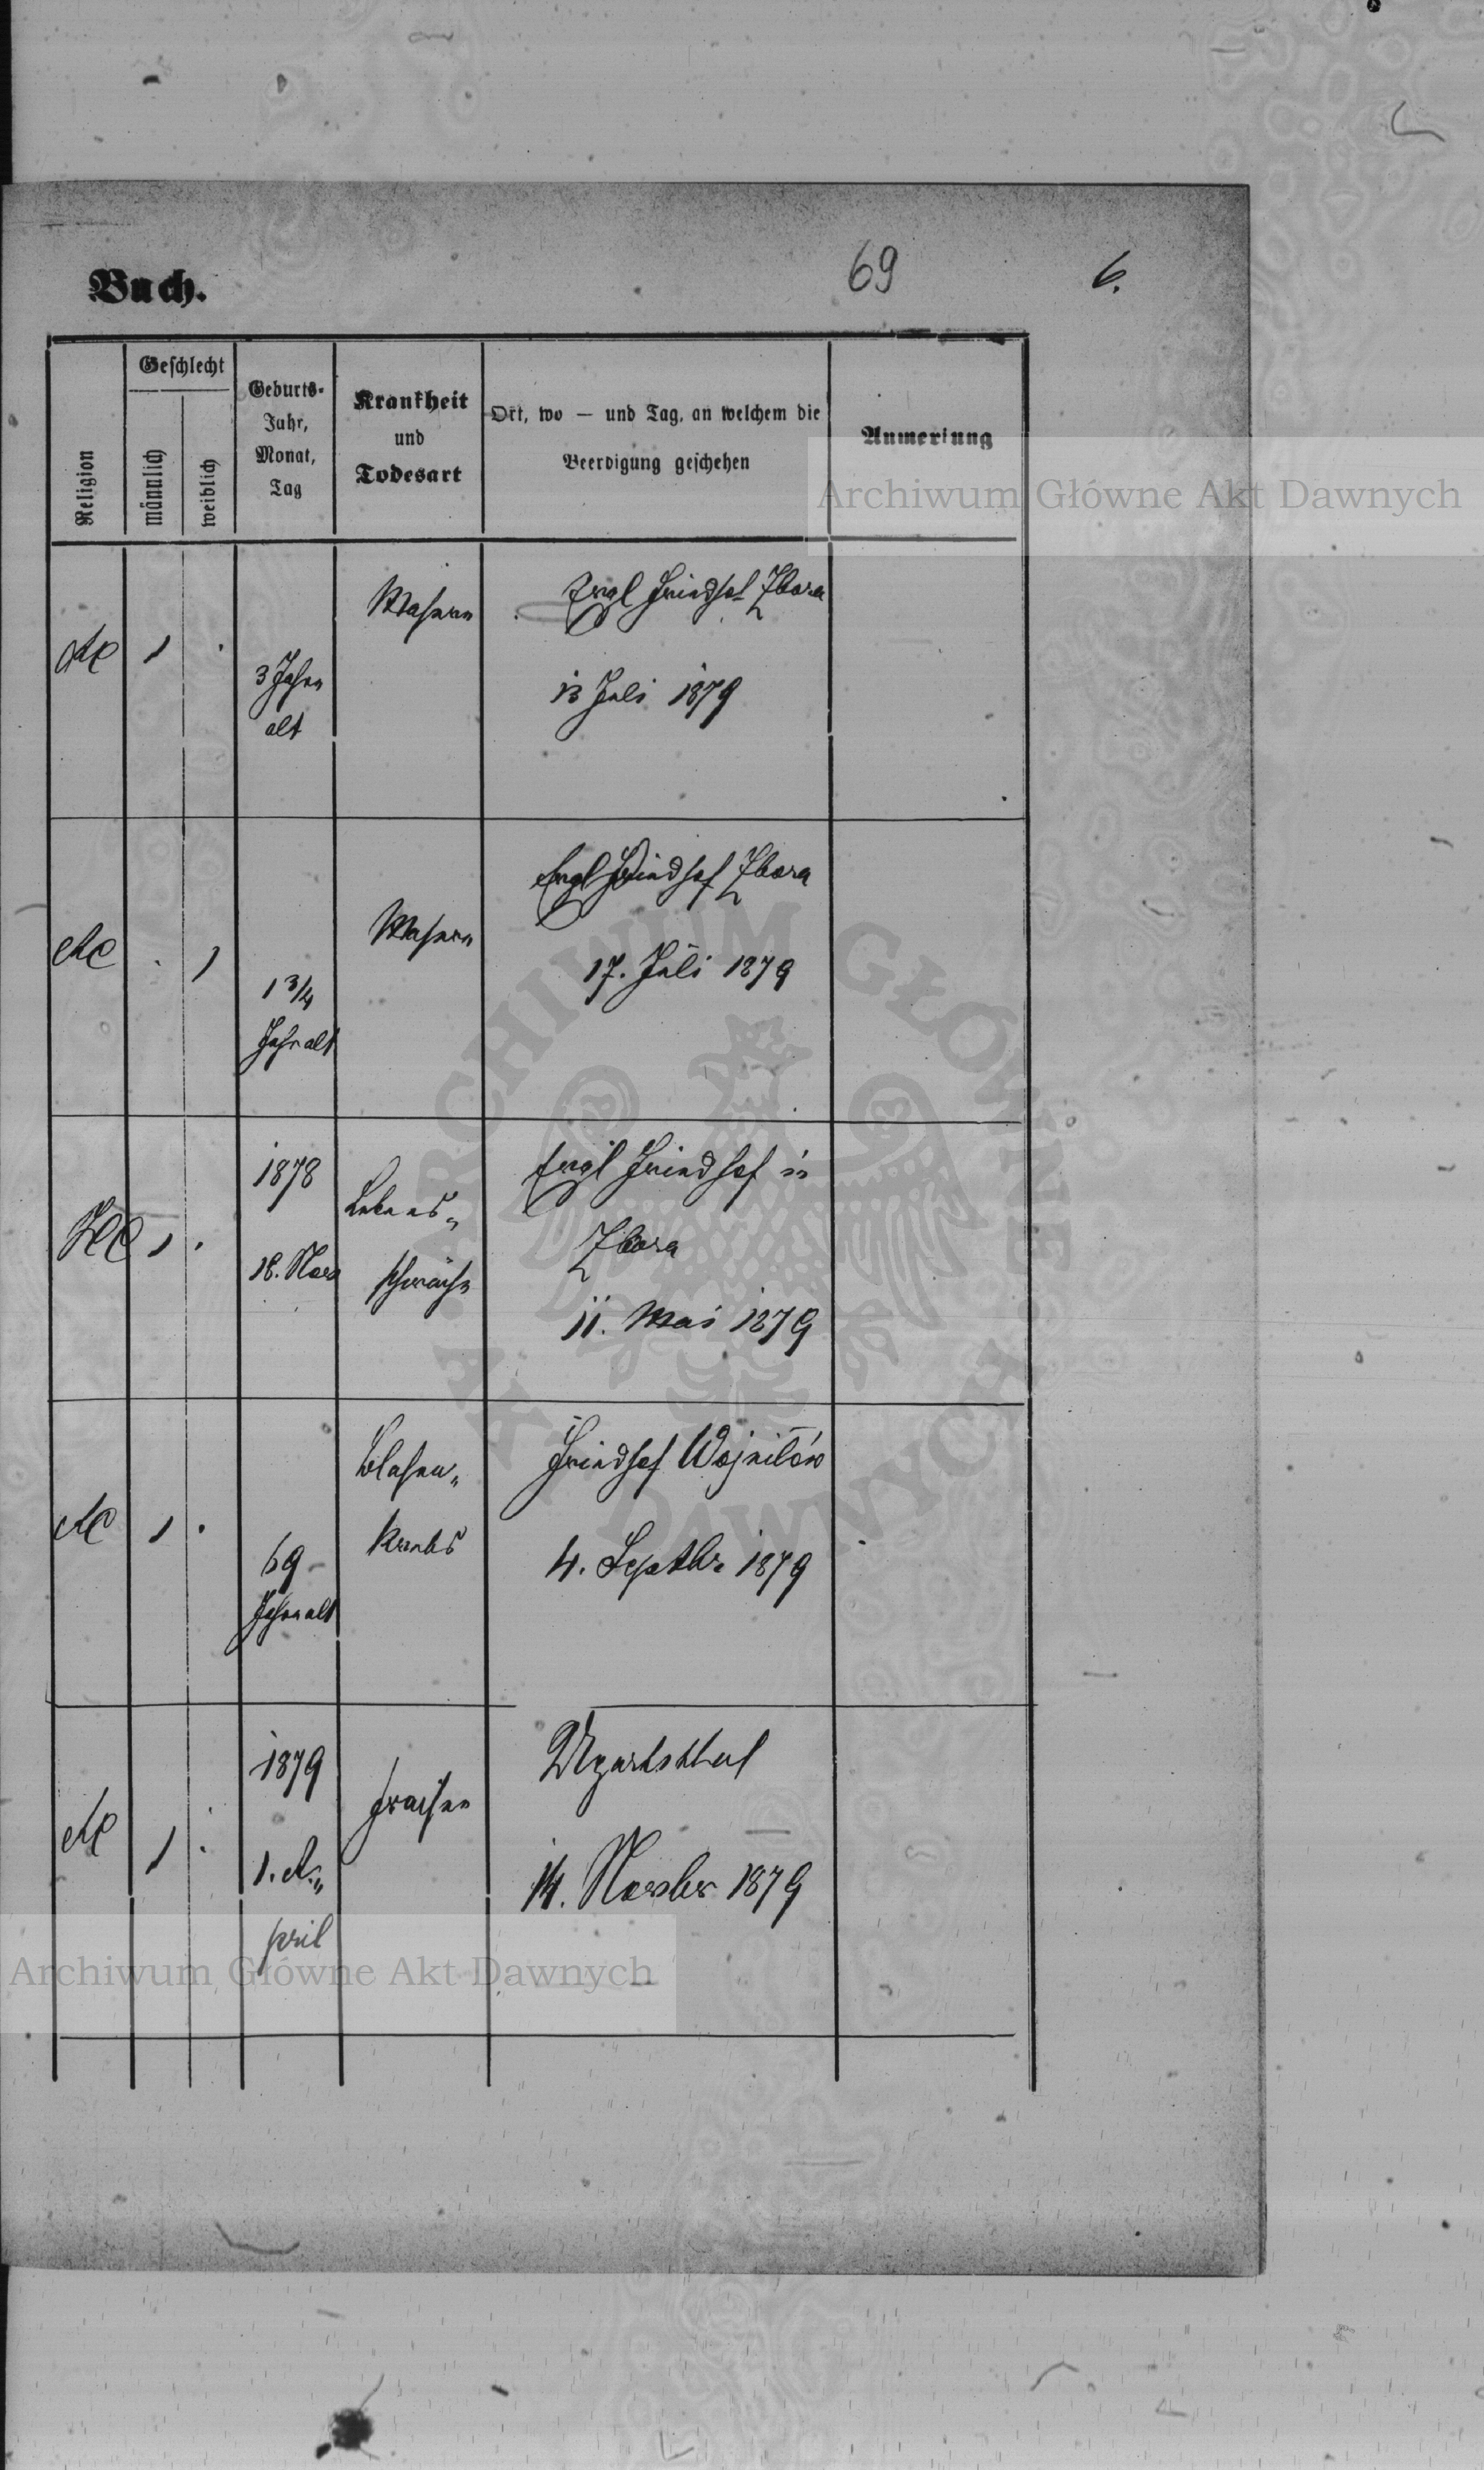 Buch.
69
6.
Religion
Geschlecht
männlich
weiblich
Geburts-
Jahr,
Monat,
Tag
Krankheit
und
Todesart
Ort, wo — und Tag, an welchem die
Beerdigung geschehen
Anmerkung
AC
1
3 Jahre
alt
Masern
Evgl Friedhof Zbora
13 Juli 1879
AC
1
1 3/4
Jahr alt
Masern
Evgl Friedhof Zbora
17. Juli 1879
HC
1
1878
18. Nov
Lebens-
schwäche
Evgl Friedhof in
Zbora
11. Mai 1879
AC
1
69
Jahre alt
Blasen-
krebs
Friedhof Wojnilów
4. Septbr 1879
AC
1
1879
1. A-
pril
Fraisen
Ugartsthal
14. Novbr 1879
Archiwum Główne Akt Dawnych
ARCHIWUM GŁÓWNE AKT DAWNYCH
Archiwum Główne Akt Dawnych